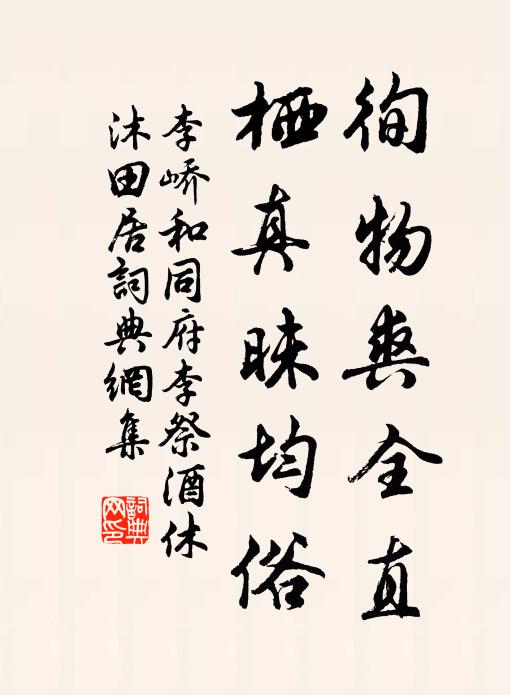 徇物爽全直
栖真昧均俗
李峤和同府李祭酒休
沐田居詞典網集
詞典
网印